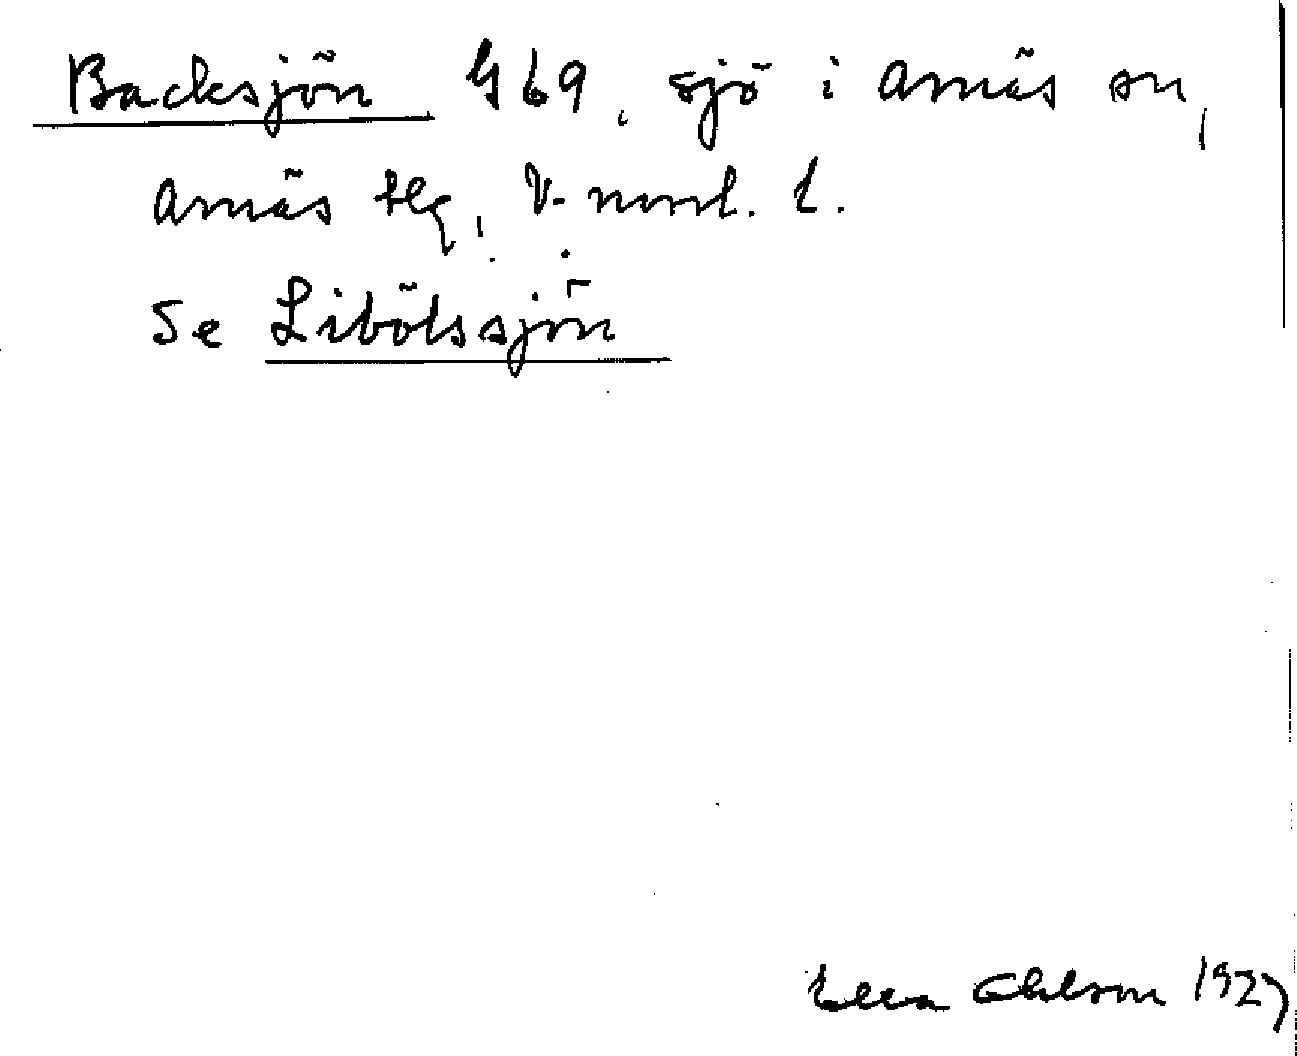 Backsjön G69, sjö i Arnäs sn,
Arnäs tlg, V-norrl. l.
Se Libölssjön
Ella Ohlson 1927